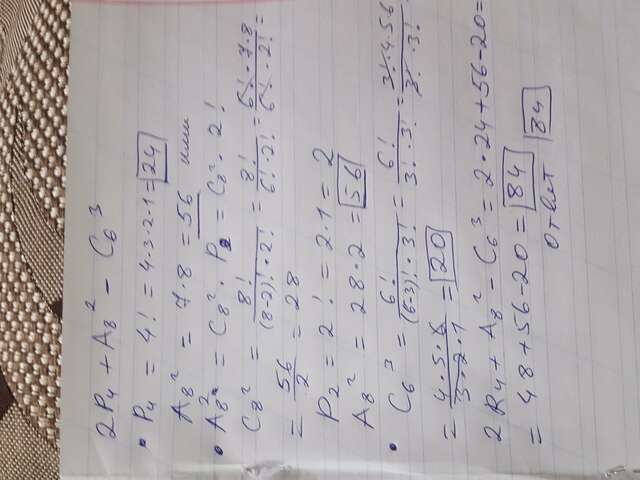 2P₄ + A₈² - C₆³
• P₄ = 4! = 4·3·2·1 = 24
A₈² = 7·8 = 56 или
• A₈² = C₈² · P₂ = C₈² · 2!
C₈² = 8! / (8-2)! · 2! = 8! / 6! · 2! = 6! · 7·8 / 6! · 2! =
= 56 / 2 = 28
P₂ = 2! = 2·1 = 2
A₈² = 28·2 = 56
• C₆³ = 6! / (6-3)! · 3! = 6! / 3! · 3! = 3! · 4·5·6 / 3! · 3!
= 4·5·6 / 3·2·1 = 20
2P₄ + A₈² - C₆³ = 2·24 + 56 - 20 =
= 48 + 56 - 20 = 84
Ответ 84